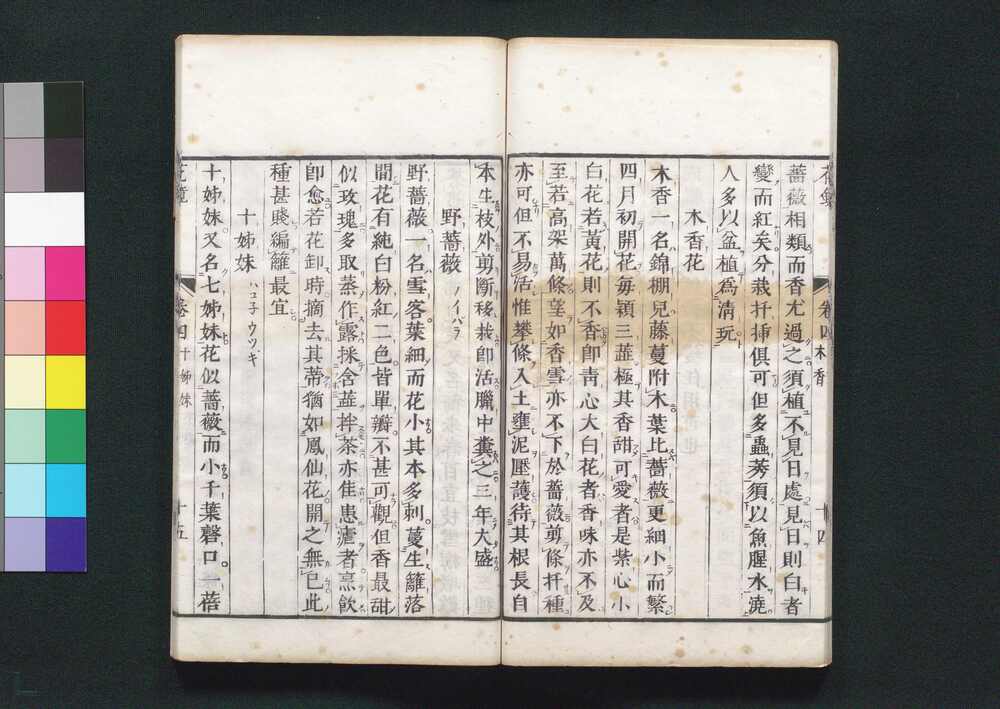 薔薇相類而香尤過之須植不見日處見日則白者
變而紅矣分栽扦揷俱可但多蟲莠須以魚腥水澆
人多以盆植爲淸玩
木香花
木香一名錦棚兒藤蔓附木葉比薔薇更細小而繁
四月初開花每穎三蕋極其香甜可愛者是紫心小
白花若黃花則不香卽靑心大白花者香味亦不及
至若高架萬條望如香雪亦不下於薔薇剪條扦種
亦可但不易活惟攀條入土壅泥壓護待其根長自
卷四 木香
十四
本生枝外剪斷移栽卽活臘中糞之三年大盛
野薔薇 ノイバラ
野薔薇一名雪客葉細而花小其本多刺蔓生籬落
開花有純白粉紅二色皆單瓣不甚可觀但香最甜
似玫瑰多取蒸作露採含蕋拌茶亦佳患瘧者烹飮
卽愈若花卸時摘去其蒂猶如鳳仙花開之無已此
種甚賤編籬最宜
十姊妹 ハコ子ウツギ
十姊妹又名七姊妹花似薔薇而小千葉磬口一蓓
花鏡
卷四 十姊妹
十五